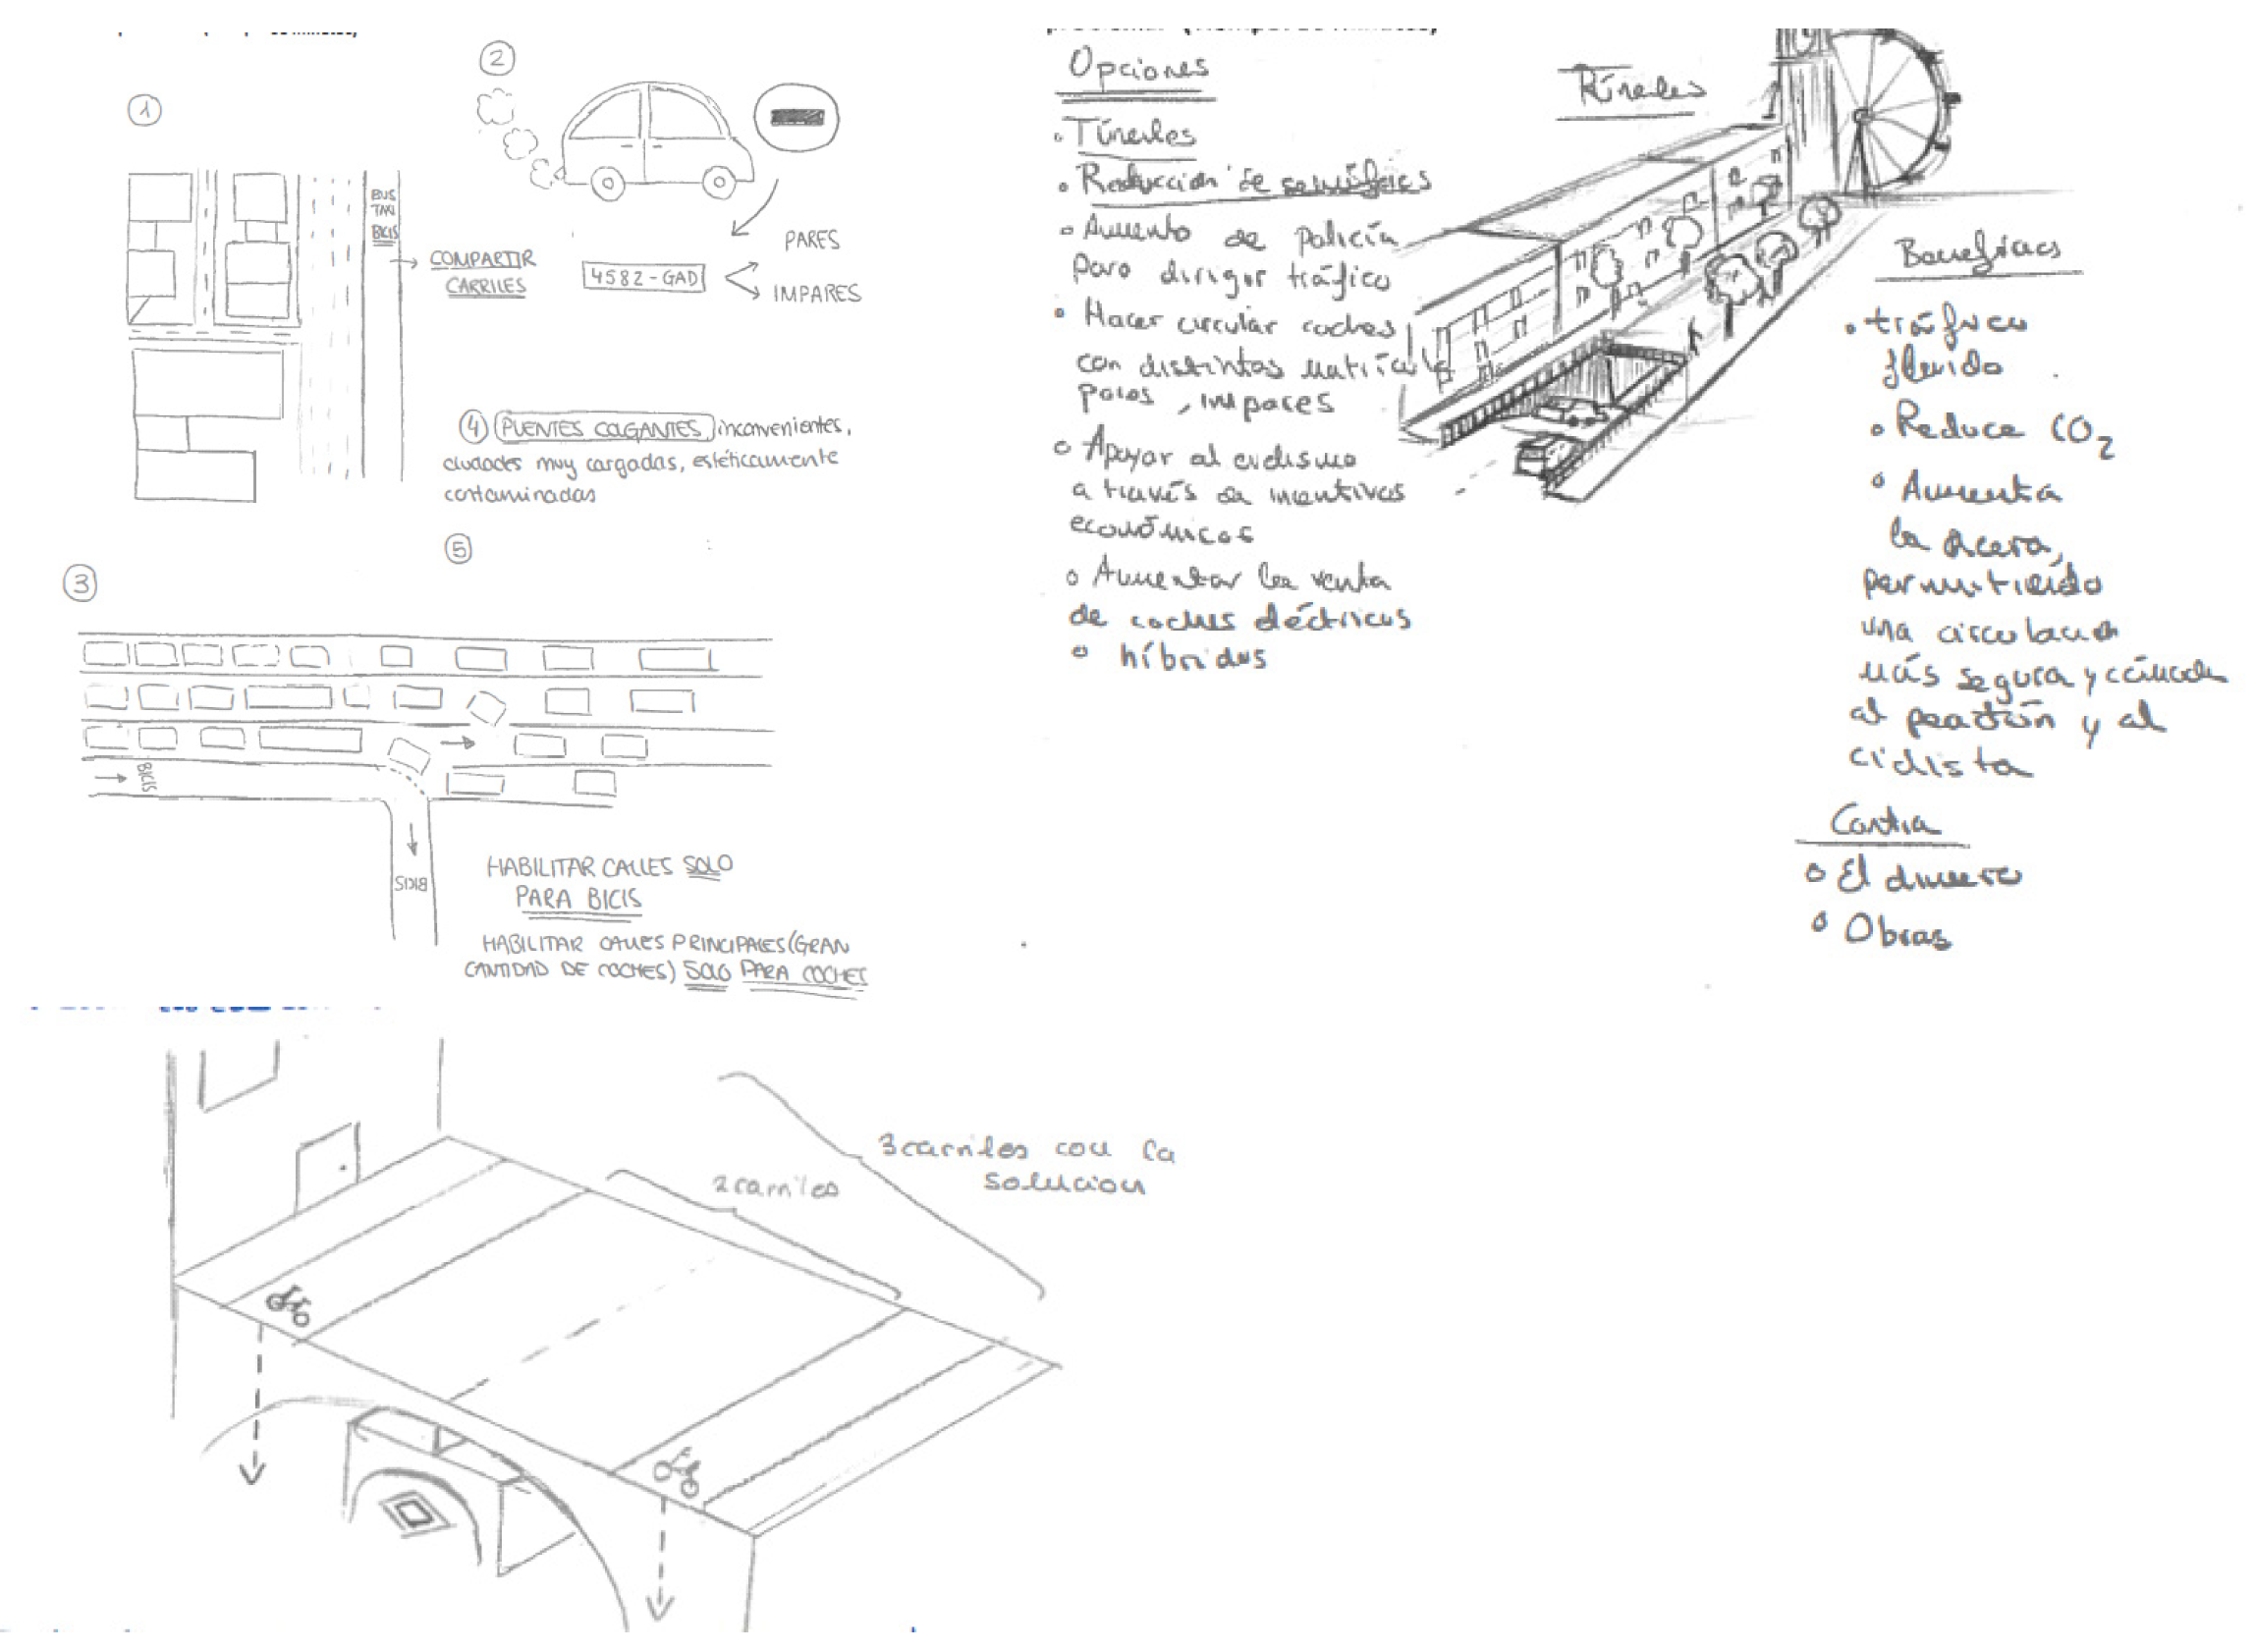 1
BUS
TAXI
BICIS
COMPARTIR
CARRILES
2
4582-GAD
PARES
IMPARES
4 PUENTES COLGANTES inconvenientes,
ciudades muy cargadas, estéticamente
contaminadas
5
3
BICIS
BICIS
HABILITAR CALLES SOLO
PARA BICIS
HABILITAR CALLES PRINCIPALES (GRAN
CANTIDAD DE COCHES) SOLO PARA COCHES
Opciones
• Túneles
• Reducción de semáforos
• Aumento de policía
para dirigir tráfico
• Hacer circular coches
con distintas matrícula
pares, impares
• Apoyar al ciclismo
a través de incentivos
económicos
• Aumentar la venta
de coches eléctricos
• híbridos
Túneles
Beneficios
• tráfico
fluido
• Reduce CO2
• Aumenta
la acera,
permitiendo
una circulación
más segura y cómoda
al peatón y al
ciclista
Contra
• El dinero
• Obras
3 carriles con la
solucion
2 carriles